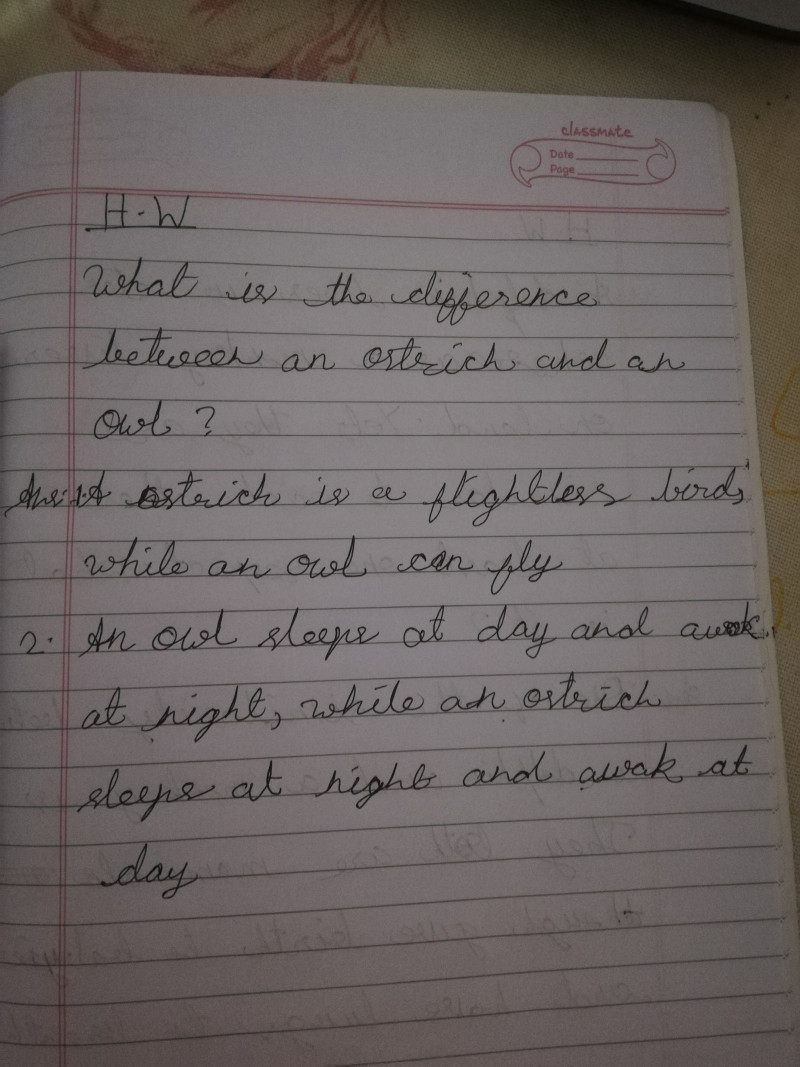 classmate
Date
Page
H.W
What is the difference
between an ostrich and an
owl ?
Ans: 1. A ostrich is a flightless bird,
while an owl can fly
2. An owl sleeps at day and awak
at night, while an ostrich
sleeps at night and awak at
day